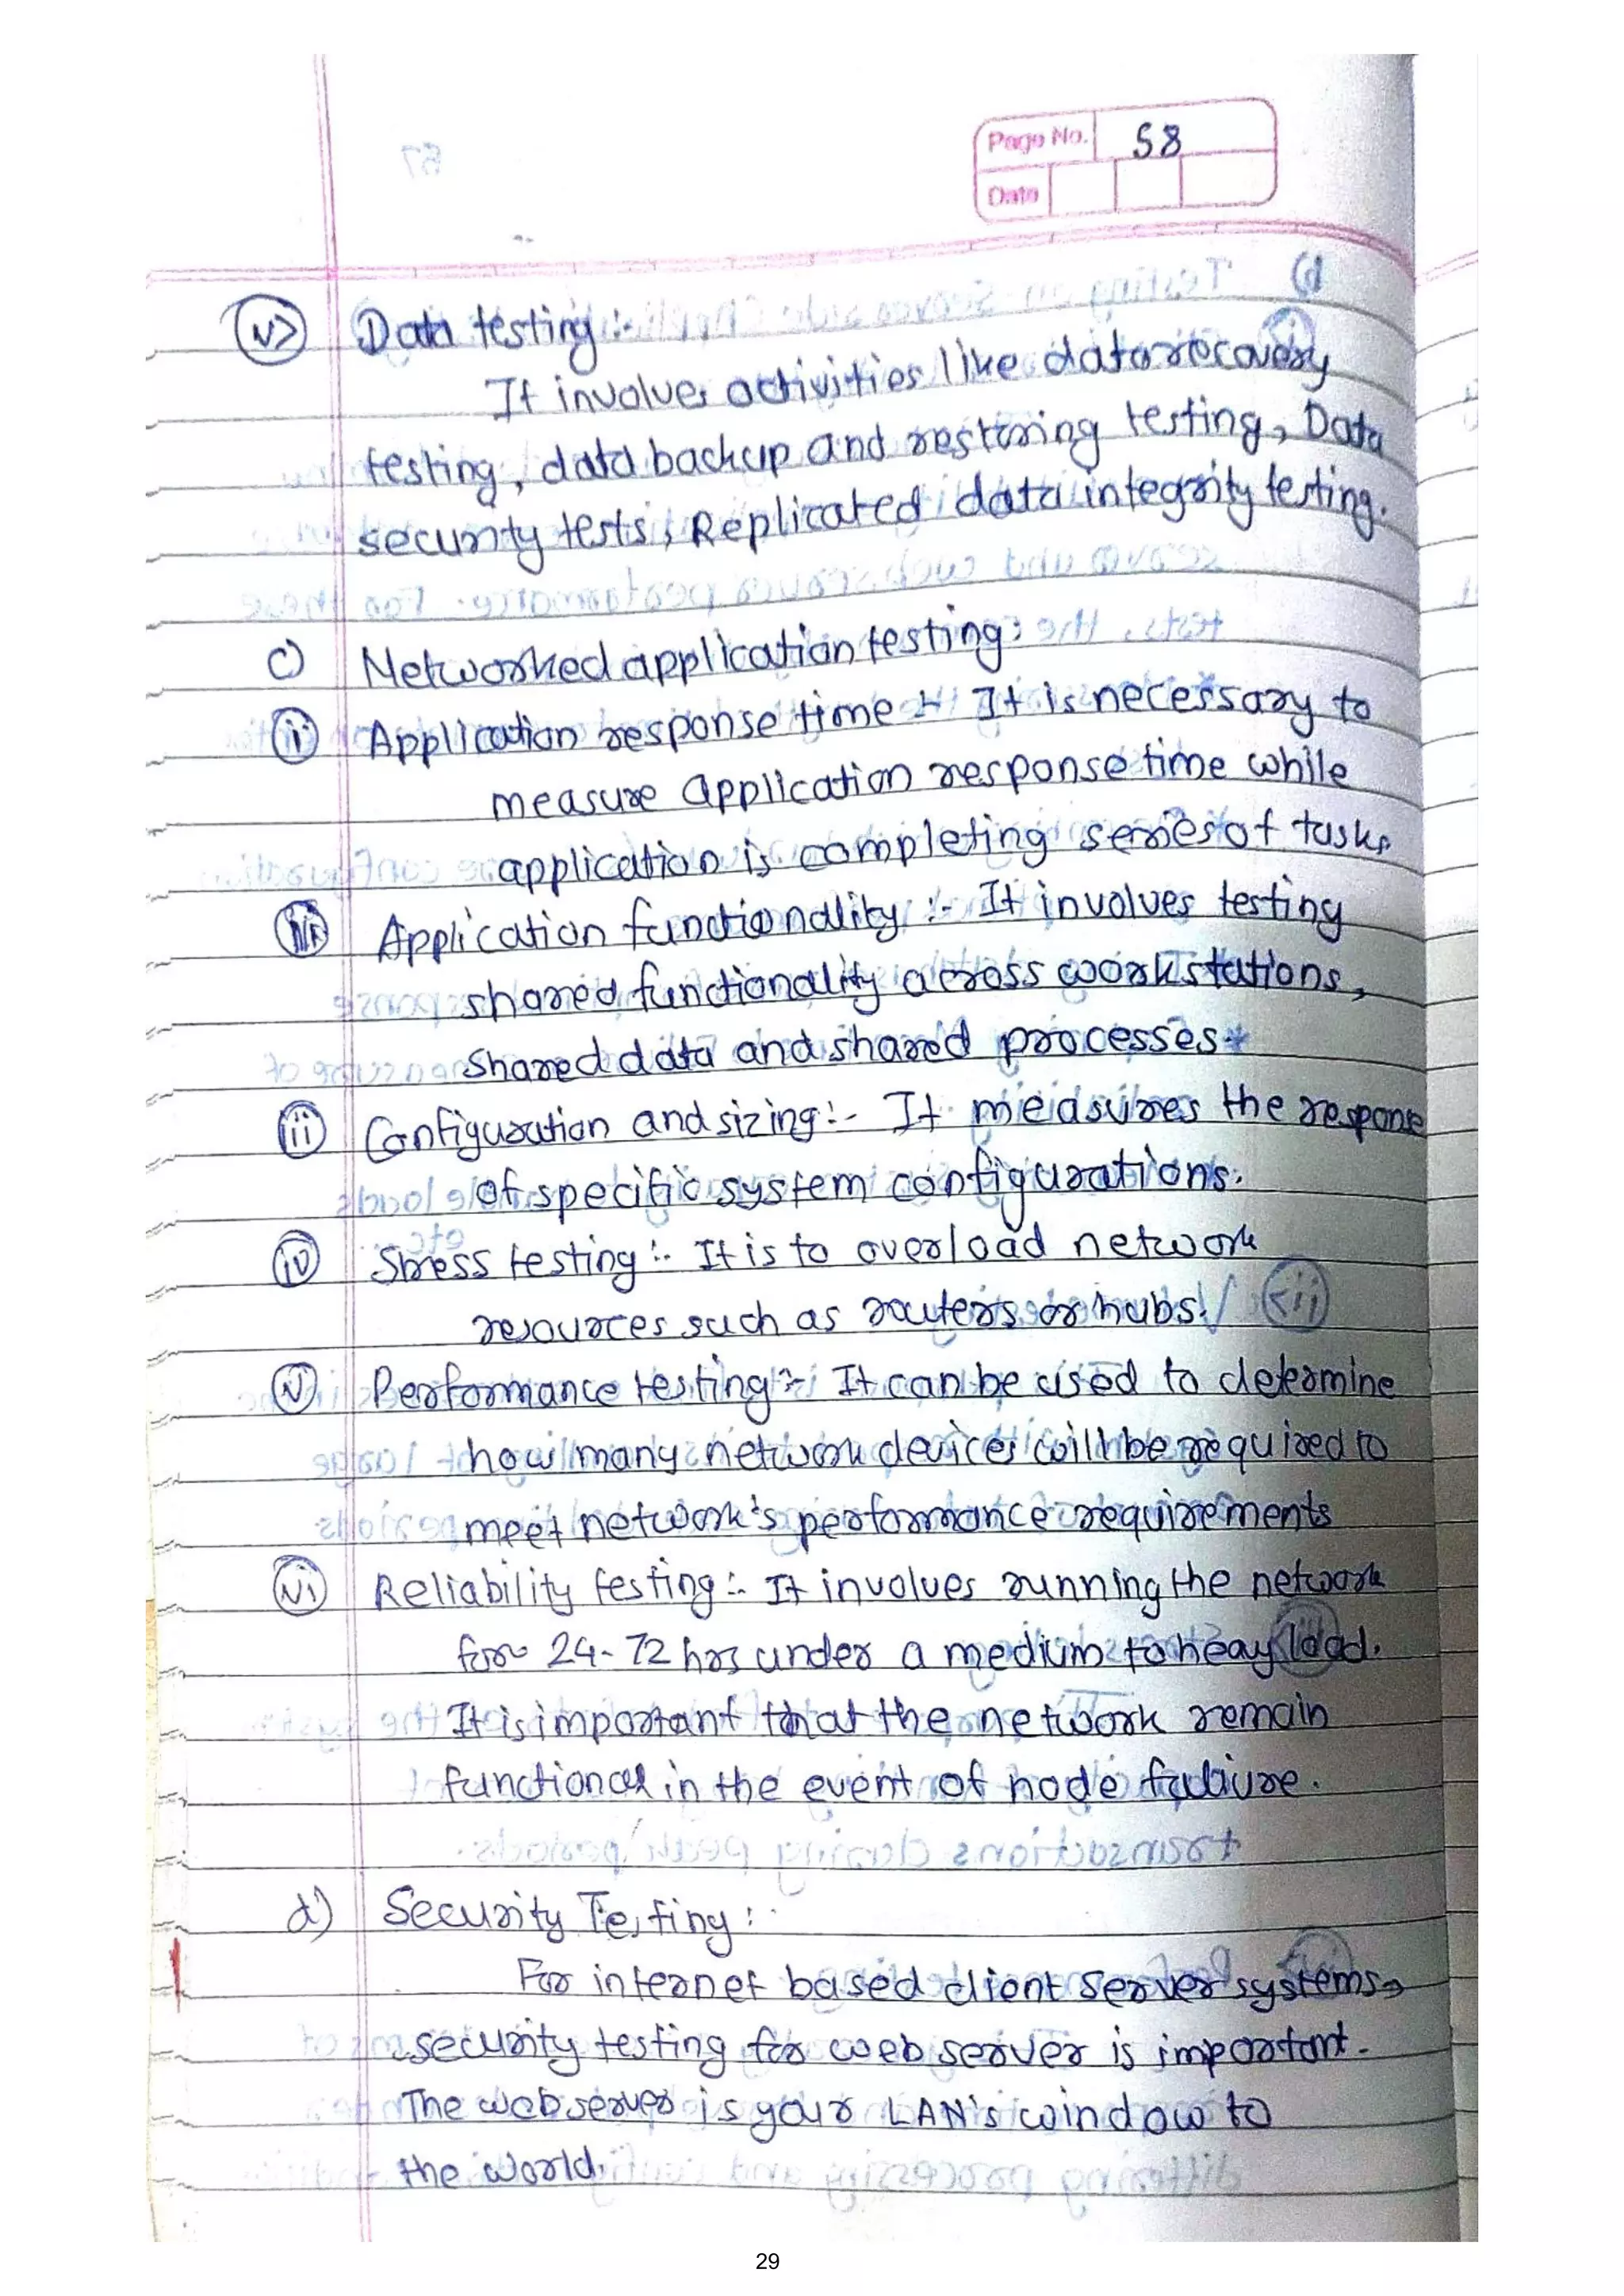 Page No. 58
Date
v> Data testing :-
It involves activities like data recovery
testing, data backup and restoring testing, Data
security tests, Replicated data integrity testing.
c) Networked application testing:
i) Application response time :- It is necessary to
measure application response time while
application is completing series of tasks
ii) Application functionality :- It involves testing
shared functionality across workstations,
shared data and shared processes.
iii) Configuration and sizing :- It measures the response
of specific system configurations.
iv) Stress testing :- It is to overload network
resources such as routers or hubs.
v) Performance testing :- It can be used to determine
how many network devices will be required to
meet network's performance requirements
vi) Reliability testing :- It involves running the network
for 24-72 hrs under a medium to heay load.
It is important that the network remain
functional in the event of node failure.
d) Security Testing :
For internet based client server systems,
security testing for web server is important.
The web server is your LAN's window to
the world.
29